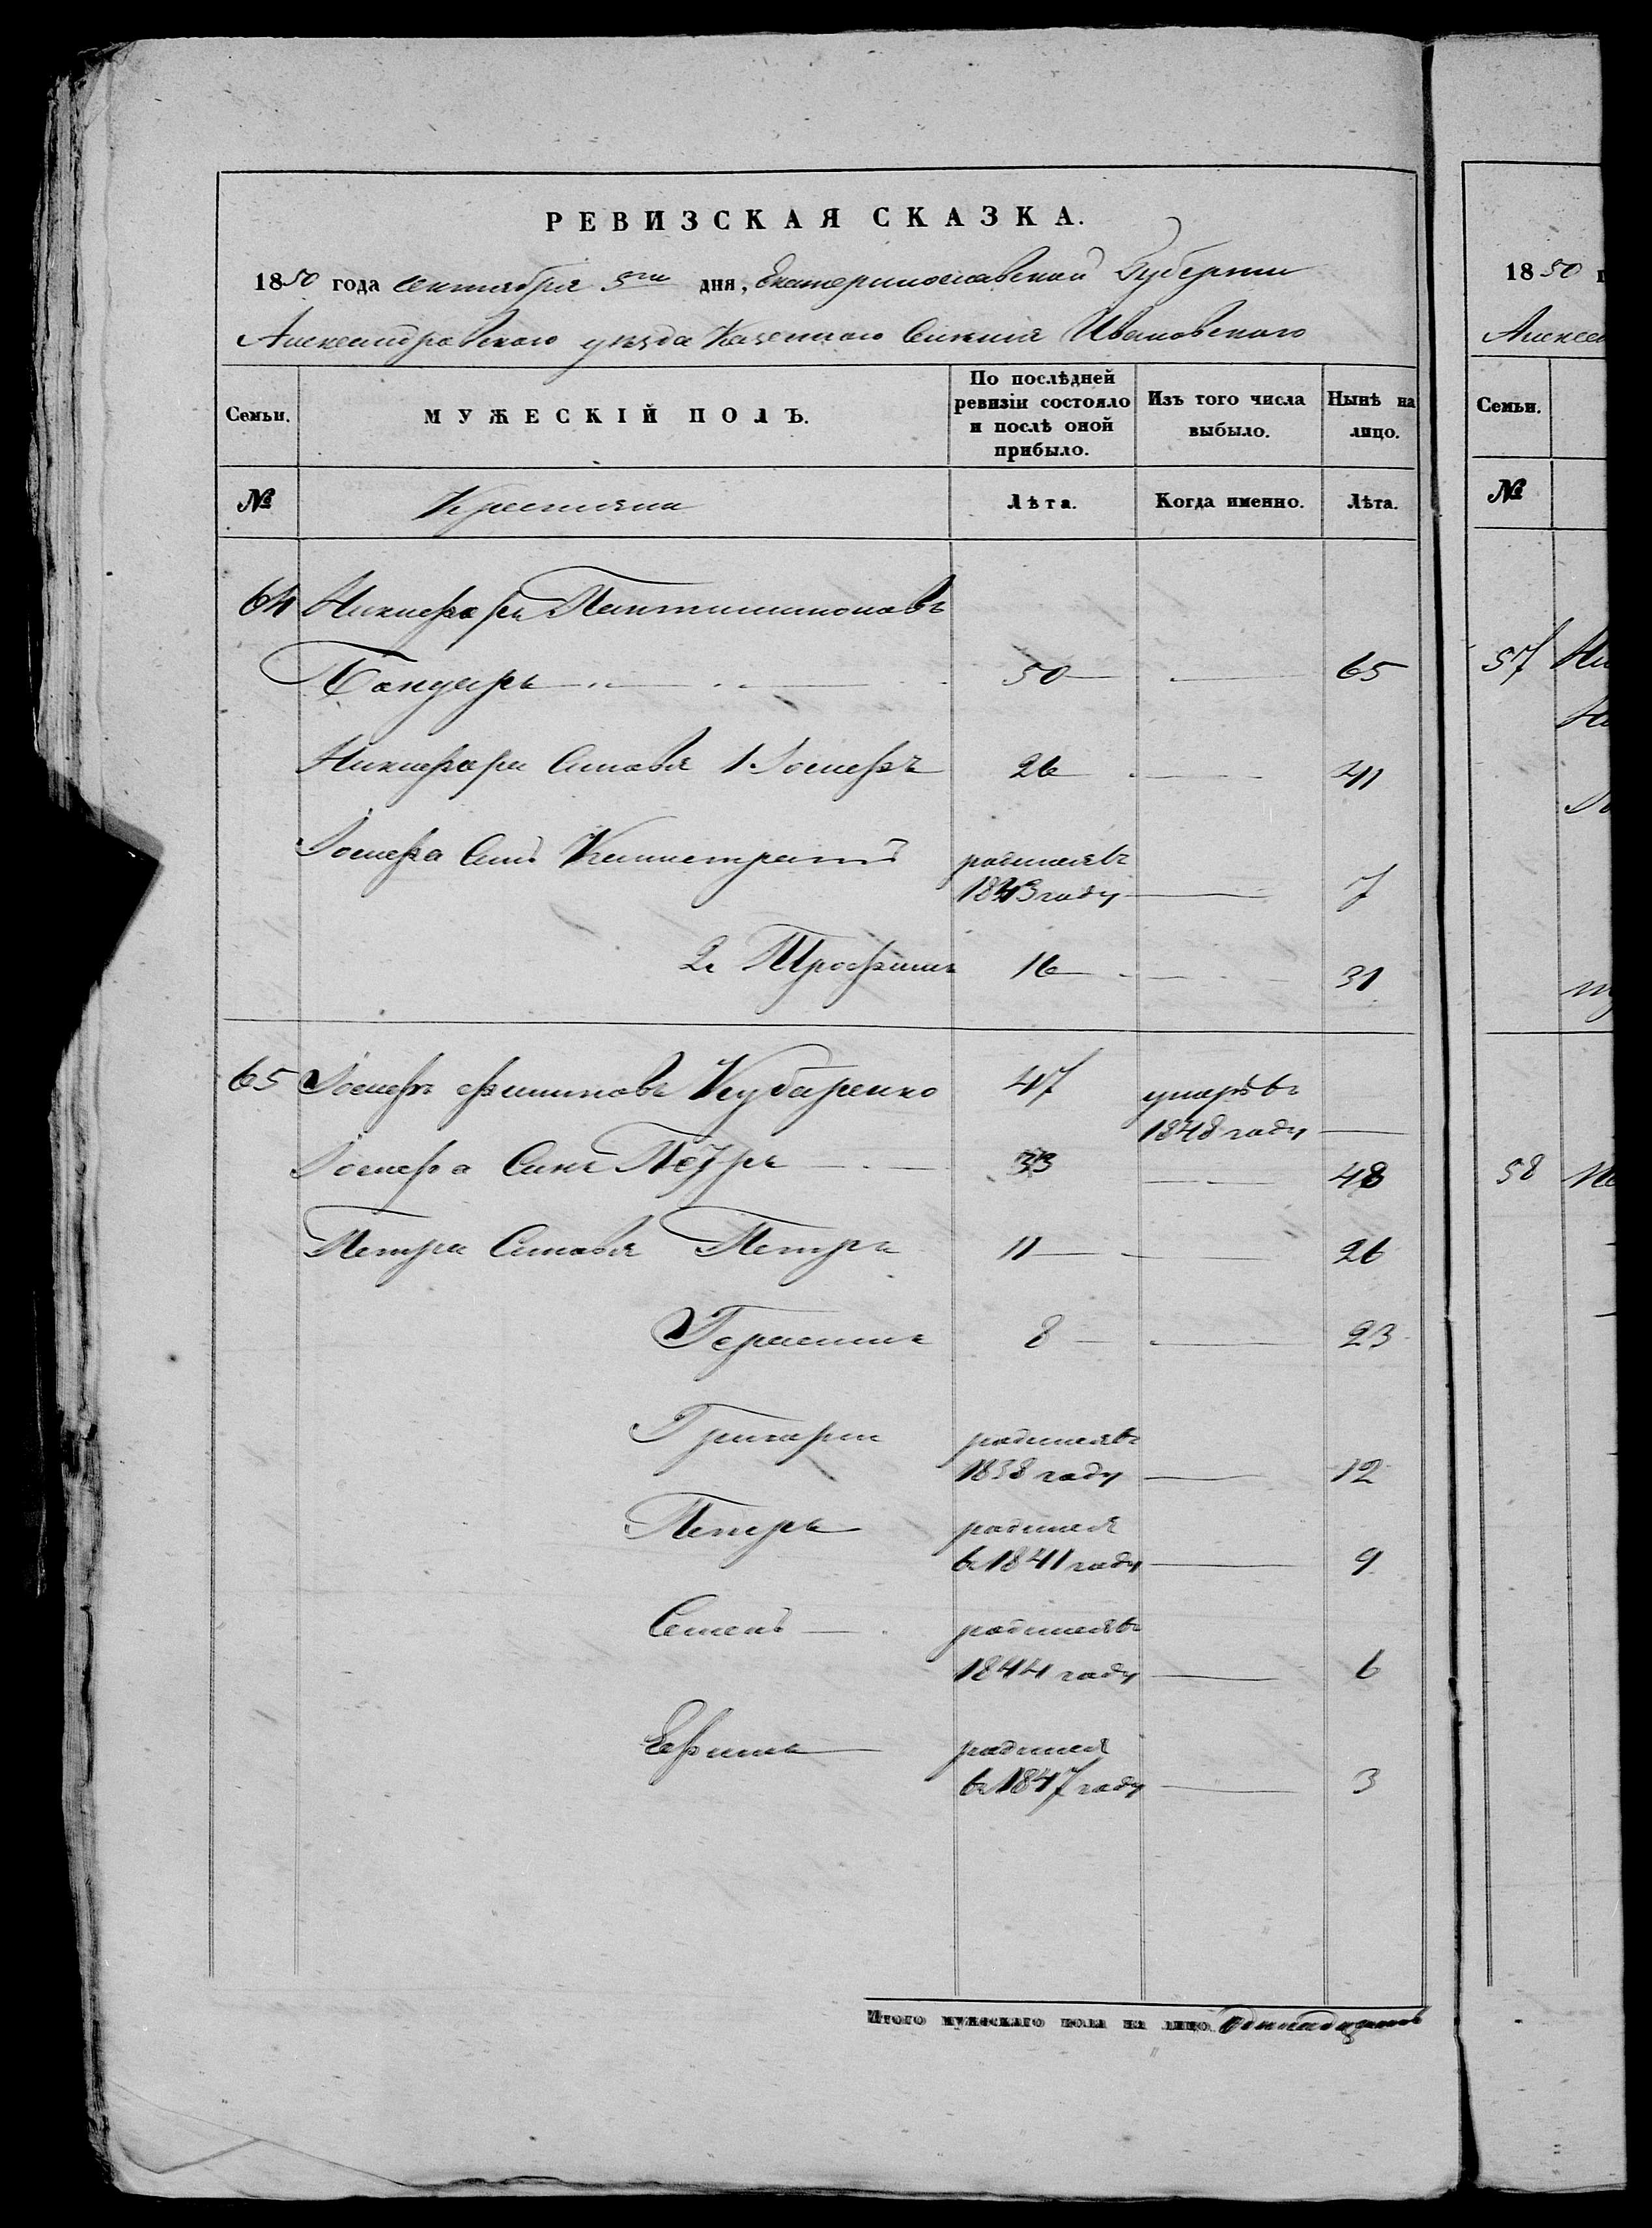 РЕВИЗСКАЯ СКАЗКА.
1850 года сентября 5го дня, Екатеринославской Губернии
Александровского уезда Казенного Селения Ивановского
Семьи. МУЖЕСКІЙ ПОЛЪ. По послѣдней ревизіи состояло и послѣ оной прибыло. Изъ того числа выбыло. Нынѣ на лицо.
№ Крестяне Лѣта. Когда именно. Лѣта.
64 Никифоръ Пантилимоновъ
Бондарь 50 65
Никифора Синовя 1 Іосифъ 26 41
Іосифа Синъ Каллистратъ родился въ
1843 году 7
2й Трофимъ 16 31
65 Іосифъ Филиповъ Кубаренко 47 умеръ въ
1848 году
Іосифа Синъ Петръ 33 48
Петра Синовя Петръ 11 26
Герасимъ 8 23
Григорій родился въ
1838 году 12
Петръ родился
въ 1841 году 9
Семенъ родился въ
1844 году 6
Ефимъ родился
въ 1847 году 3
Итого мужескаго пола на лицо Одинадцать
1850 г
Алексан
Семьи.
№
57 Ни
58